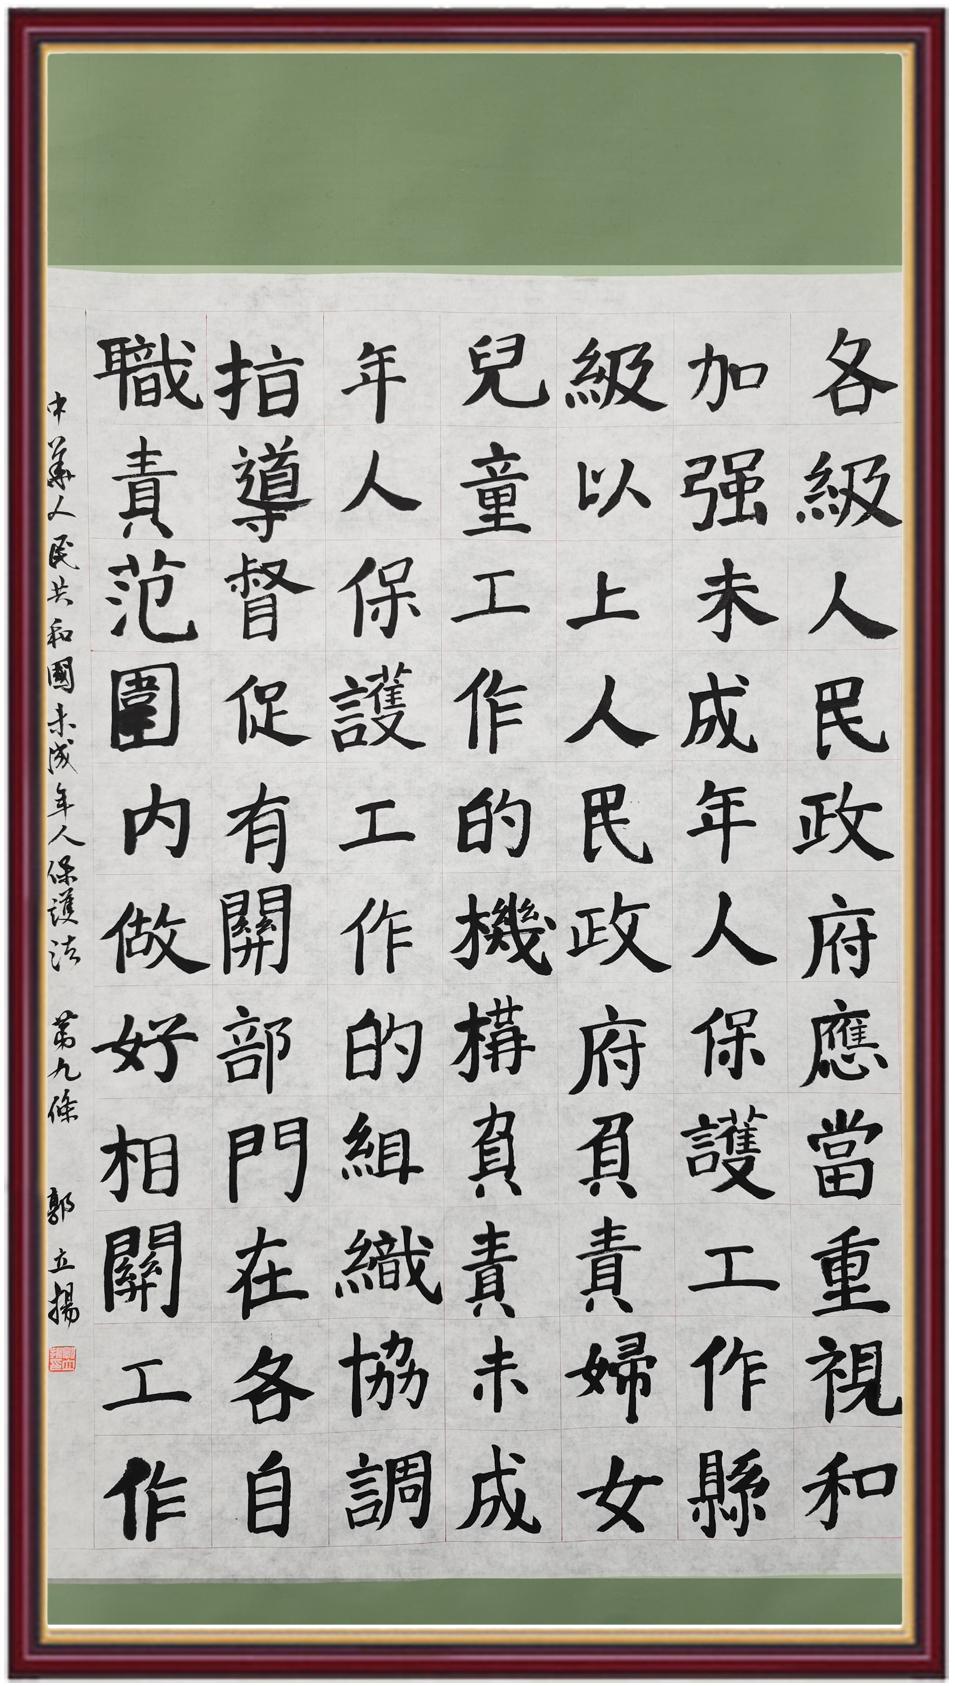 各級人民政府應當重視和
加强未成年人保護工作縣
級以上人民政府負責婦女
兒童工作的機構負責未成
年人保護工作的組織協調
指導督促有關部門在各自
職責范圍内做好相關工作
中華人民共和國未成年人保護法 第九條 郭立揚